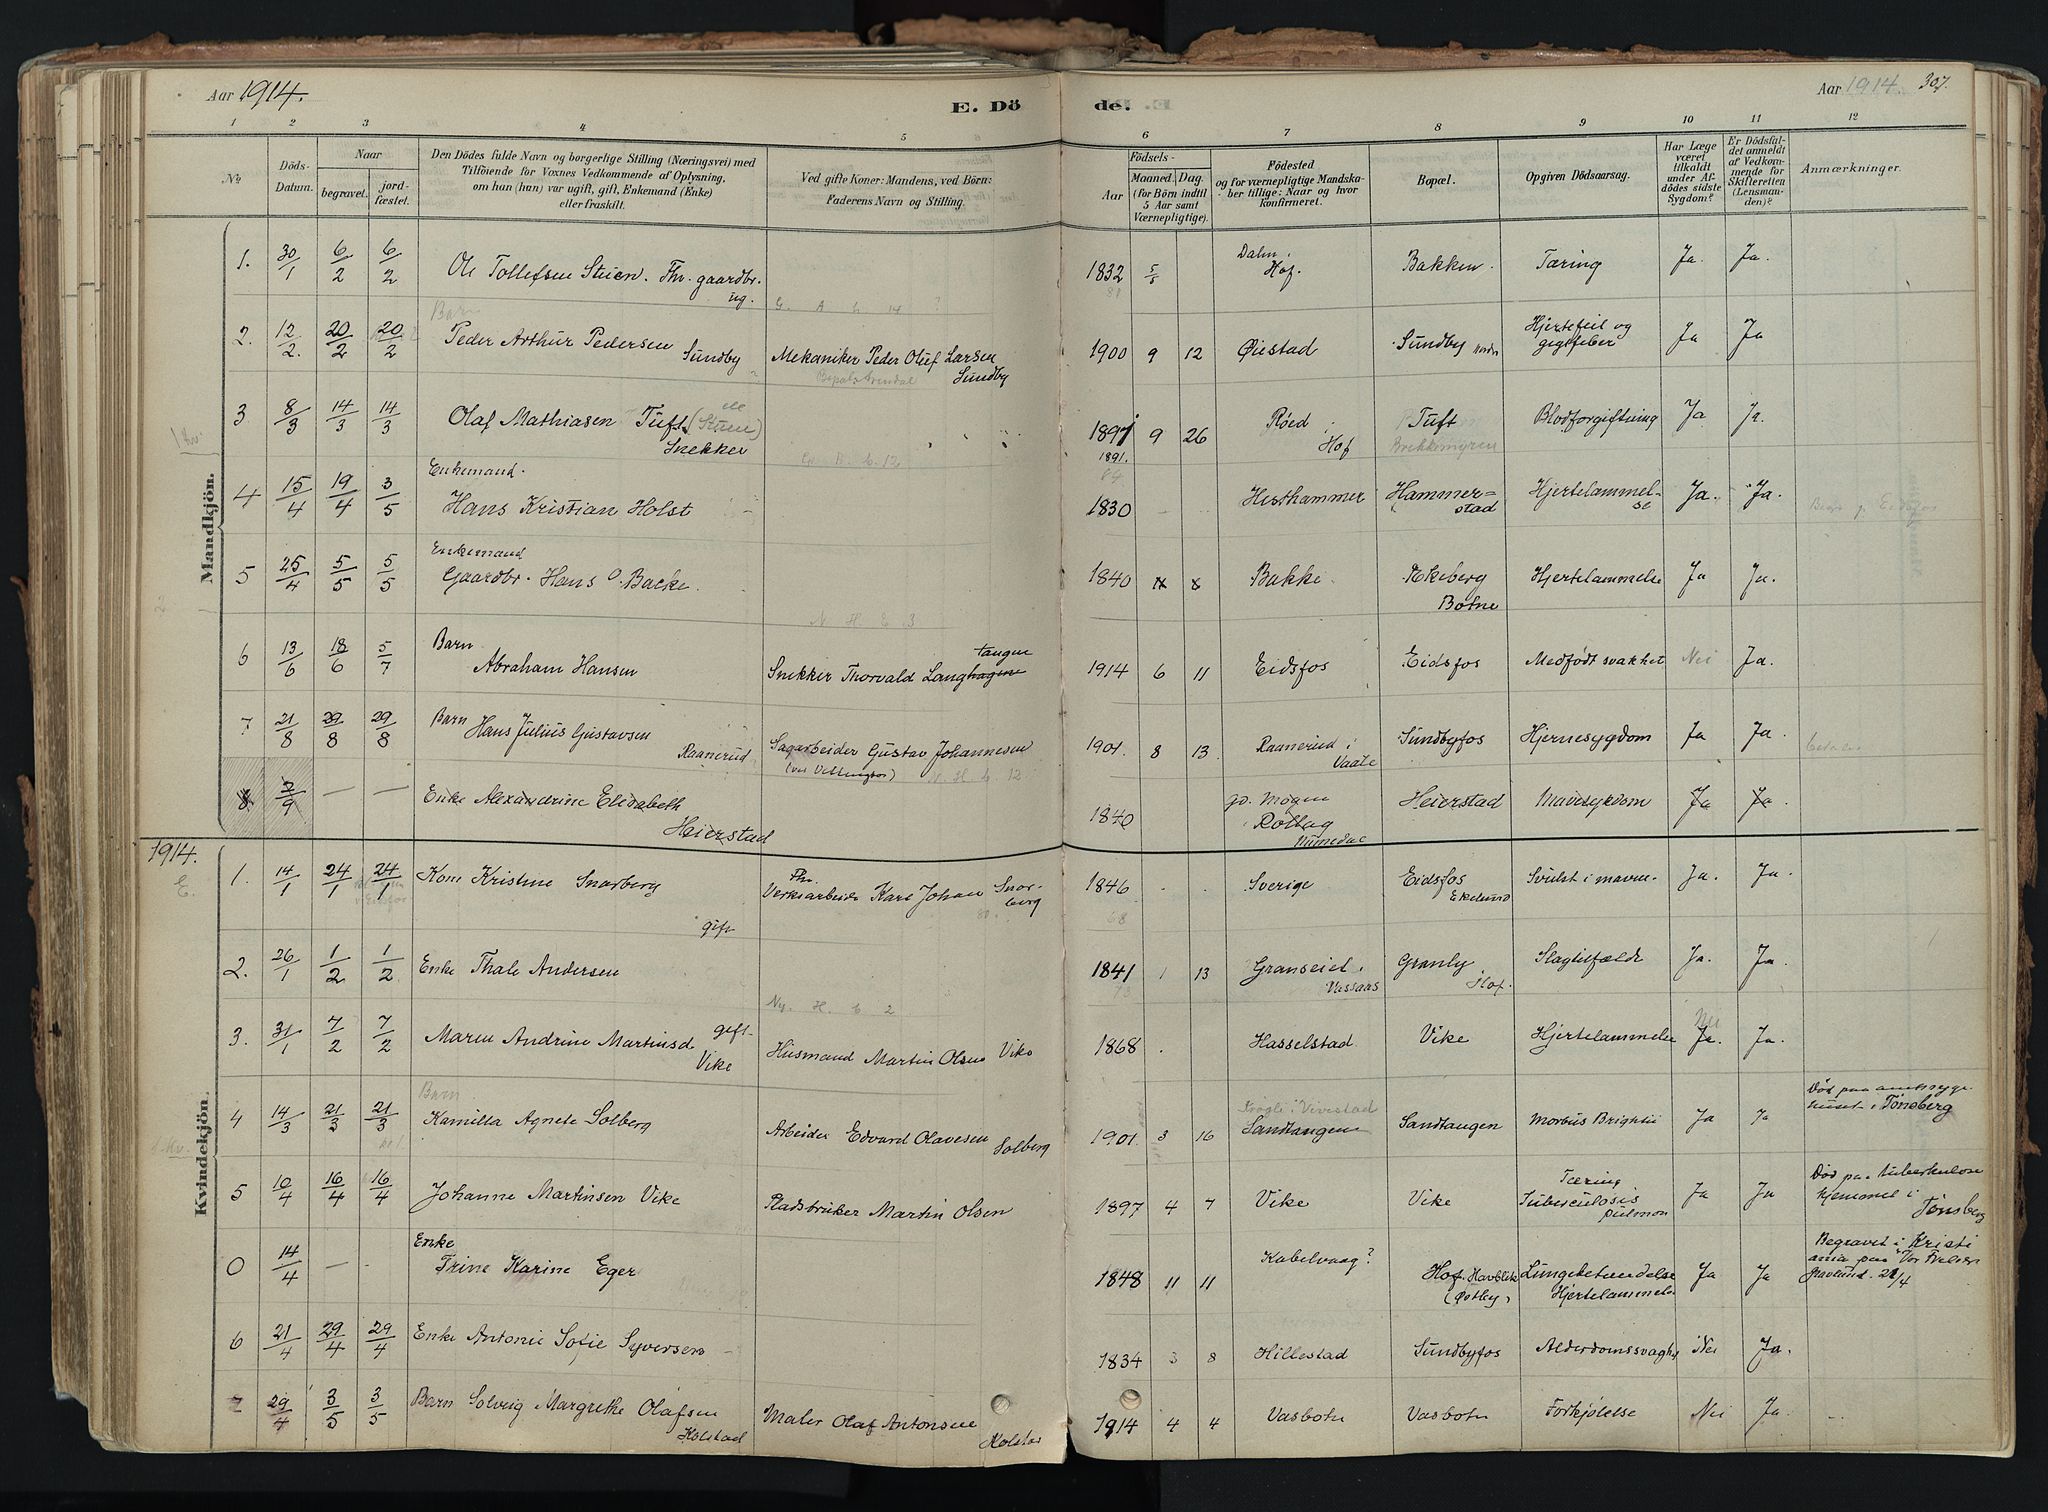 Aar 1914.
E. Dö
de.
Aar 1914. 307.
1 2 3 4 5 6 7 8 9 10 11 12
No
Döds-Datum.
Naar
begravet.
jord-fæstet.
Den Dödes fulde Navn og borgerlige Stilling (Næringsvei) med
Tilföiende for Voxnes Vedkommende af Oplysning,
om han (hun) var ugift, gift, Enkemand (Enke)
eller fraskilt.
Ved gifte Koner: Mandens, ved Börn:
Faderens Navn og Stilling.
Födsels-
Aar
Maaned. Dag.
(for Börn indtil
5 Aar samt
Værnepligtige).
Födested
og for værnepligtige Mandska-
ber tillige: Naar og hvor
konfirmeret.
Bopæl.
Opgiven Dödsaarsag.
Har Læge
været
tilkaldt
under Af-
dödes sidste
Sygdom?
Er Dödsfal-
det anmeldt
af Vedkom-
mende for
Skifteretten
(Lensman-
den)?
Anmærkninger.
Mandkjön.
1. 30/1 6/2 6/2 Ole Tollefsen Steien. Fhv. gaardbr. ug. 1832 5/5 Dalen i Hof. Bakken. Tæring Ja. Ja.
2. 12/2. 20/2 20/2 Barn Peder Arthur Pedersen Sundby Mekaniker Peder Oluf Larsen Sundby 1900 9 12 Øiestad Sundby nordre Hjertefeil og gigtfeber Ja Ja
3 8/3 14/3 14/3 Olaf Mathiasen Tuft Snekker 1891. 9 26 Røed i Hof Tuft Brekkemyren Blodforgiftning Ja Ja.
4 15/4 19/4 3/5 Enkemand. Hans Kristian Holst 1830 Hesthammer Hammerstad Hjertelammelse Ja. Ja.
5 25/4 5/5 5/5 Enkemand Gaardbr. Hans O. Backe. 1840 Bakke Ekeberg Botne Hjertelammelse Ja Ja.
6 13/6 18/6 5/7 Barn Abraham Hansen Snekker Thorvald Langhagen tangen 1914 6 11 Eidsfos Eidsfos Medfödt svakhet Nei Ja.
7 21/8 29/8 29/8 Barn Hans Julius Gustavsen Raanerud Sagarbeider Gustav Johannesen 1901. 8 13 Raanerud i Vaale Sundbyfos Hjernesygdom Ja Ja.
8 2/9 — — Enke Alexandrine Elisabeth Heierstad 1840 gd. Mogen i Rollag Numedal Heierstad Mavesykdom Ja Ja.
1914.
Kvindekjön.
1. 14/1 24/1 24/1 Kone Kristine Snarberg gift Fhv. Verksarbeider Karl Johan Snorberg 1846 Sverige Eidsfos Ekelund Svulst i maven Ja. Ja.
2. 26/1 1/2 1/2 Enke Thale Andersen 1841 1 13 Granseiet i Vassaas Granly Hof. Slagtilfælde Ja. Ja.
3. 31/1 7/2 7/2 Maren Andrine Martinsd gift Vike Husmand Martin Olsen Vike 1868 Hasselstad Vike Hjertelammelse Nei Ja. Ja.
4 14/3 21/3 21/3 Barn Kamilla Agnete Solberg Arbeider Edvard Olavesen Solberg 1901. 3 16 Sandtangen Sandtangen Morbus Brightii Ja Ja Död paa amtssygehuset i Tönsberg
5 10/4 16/4 16/4 Johanne Martinsen Vike Pladsbruker Martin Olsen 1897 4 7 Vike Vike Tæring Tuberculosis pulmon Ja Ja Död paa tuberkulose hjemmet i Tönsberg
0 14/4 — - Enke Trine Karine Eger 1848 11 11 Kabelvaag? Hof. Havblik (Østby) Lungebetændelse Hjertelammelse Ja Ja Begravet i Kristiania paa Vor Frelsers gravlund. 21/4
6 21/4 29/4 29/4 Enke Antonie Sofie Syversen 1834 3 8 Hillestad Sundbyfos Alderdomssvaghet Nei Ja.
7 29/4 3/5 3/5 Barn Solveig Margrethe Olafsen Kolstad Maler Olaf Antonsen Kolstad 1914 4 4 Vasbotn Vasbotn Forkjölelse Nei Ja.